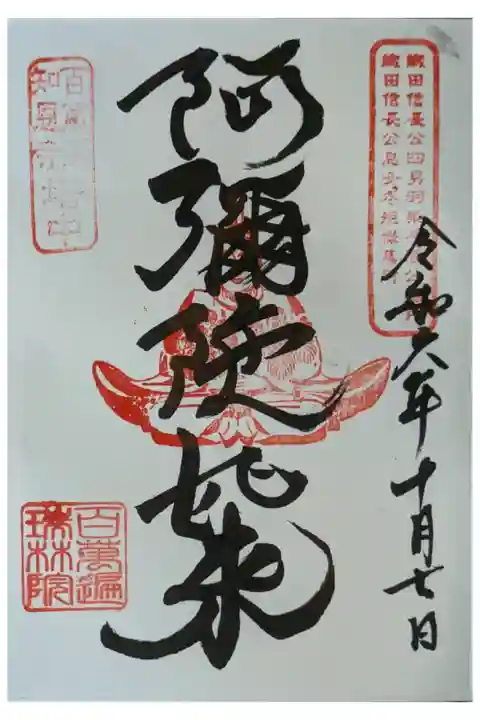 織田信長公四男羽
織田信長公息女冬姫
令和六年十月七日
阿彌陀如来
知恩寺塔中
百萬遍
瑞林院